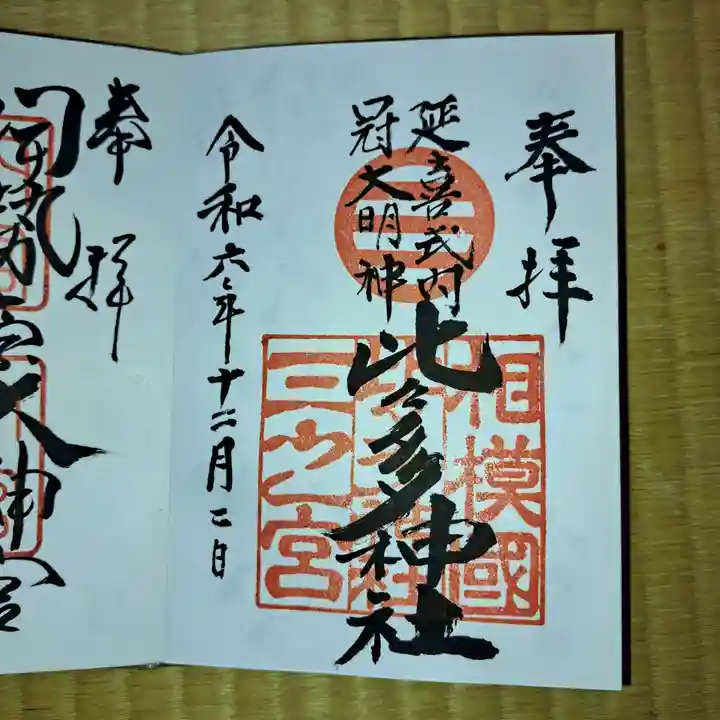 奉拝
延喜式内
冠大明神
比々多神社
相模國
三之宮
令和六年十二月二日
奉拝
大神宮